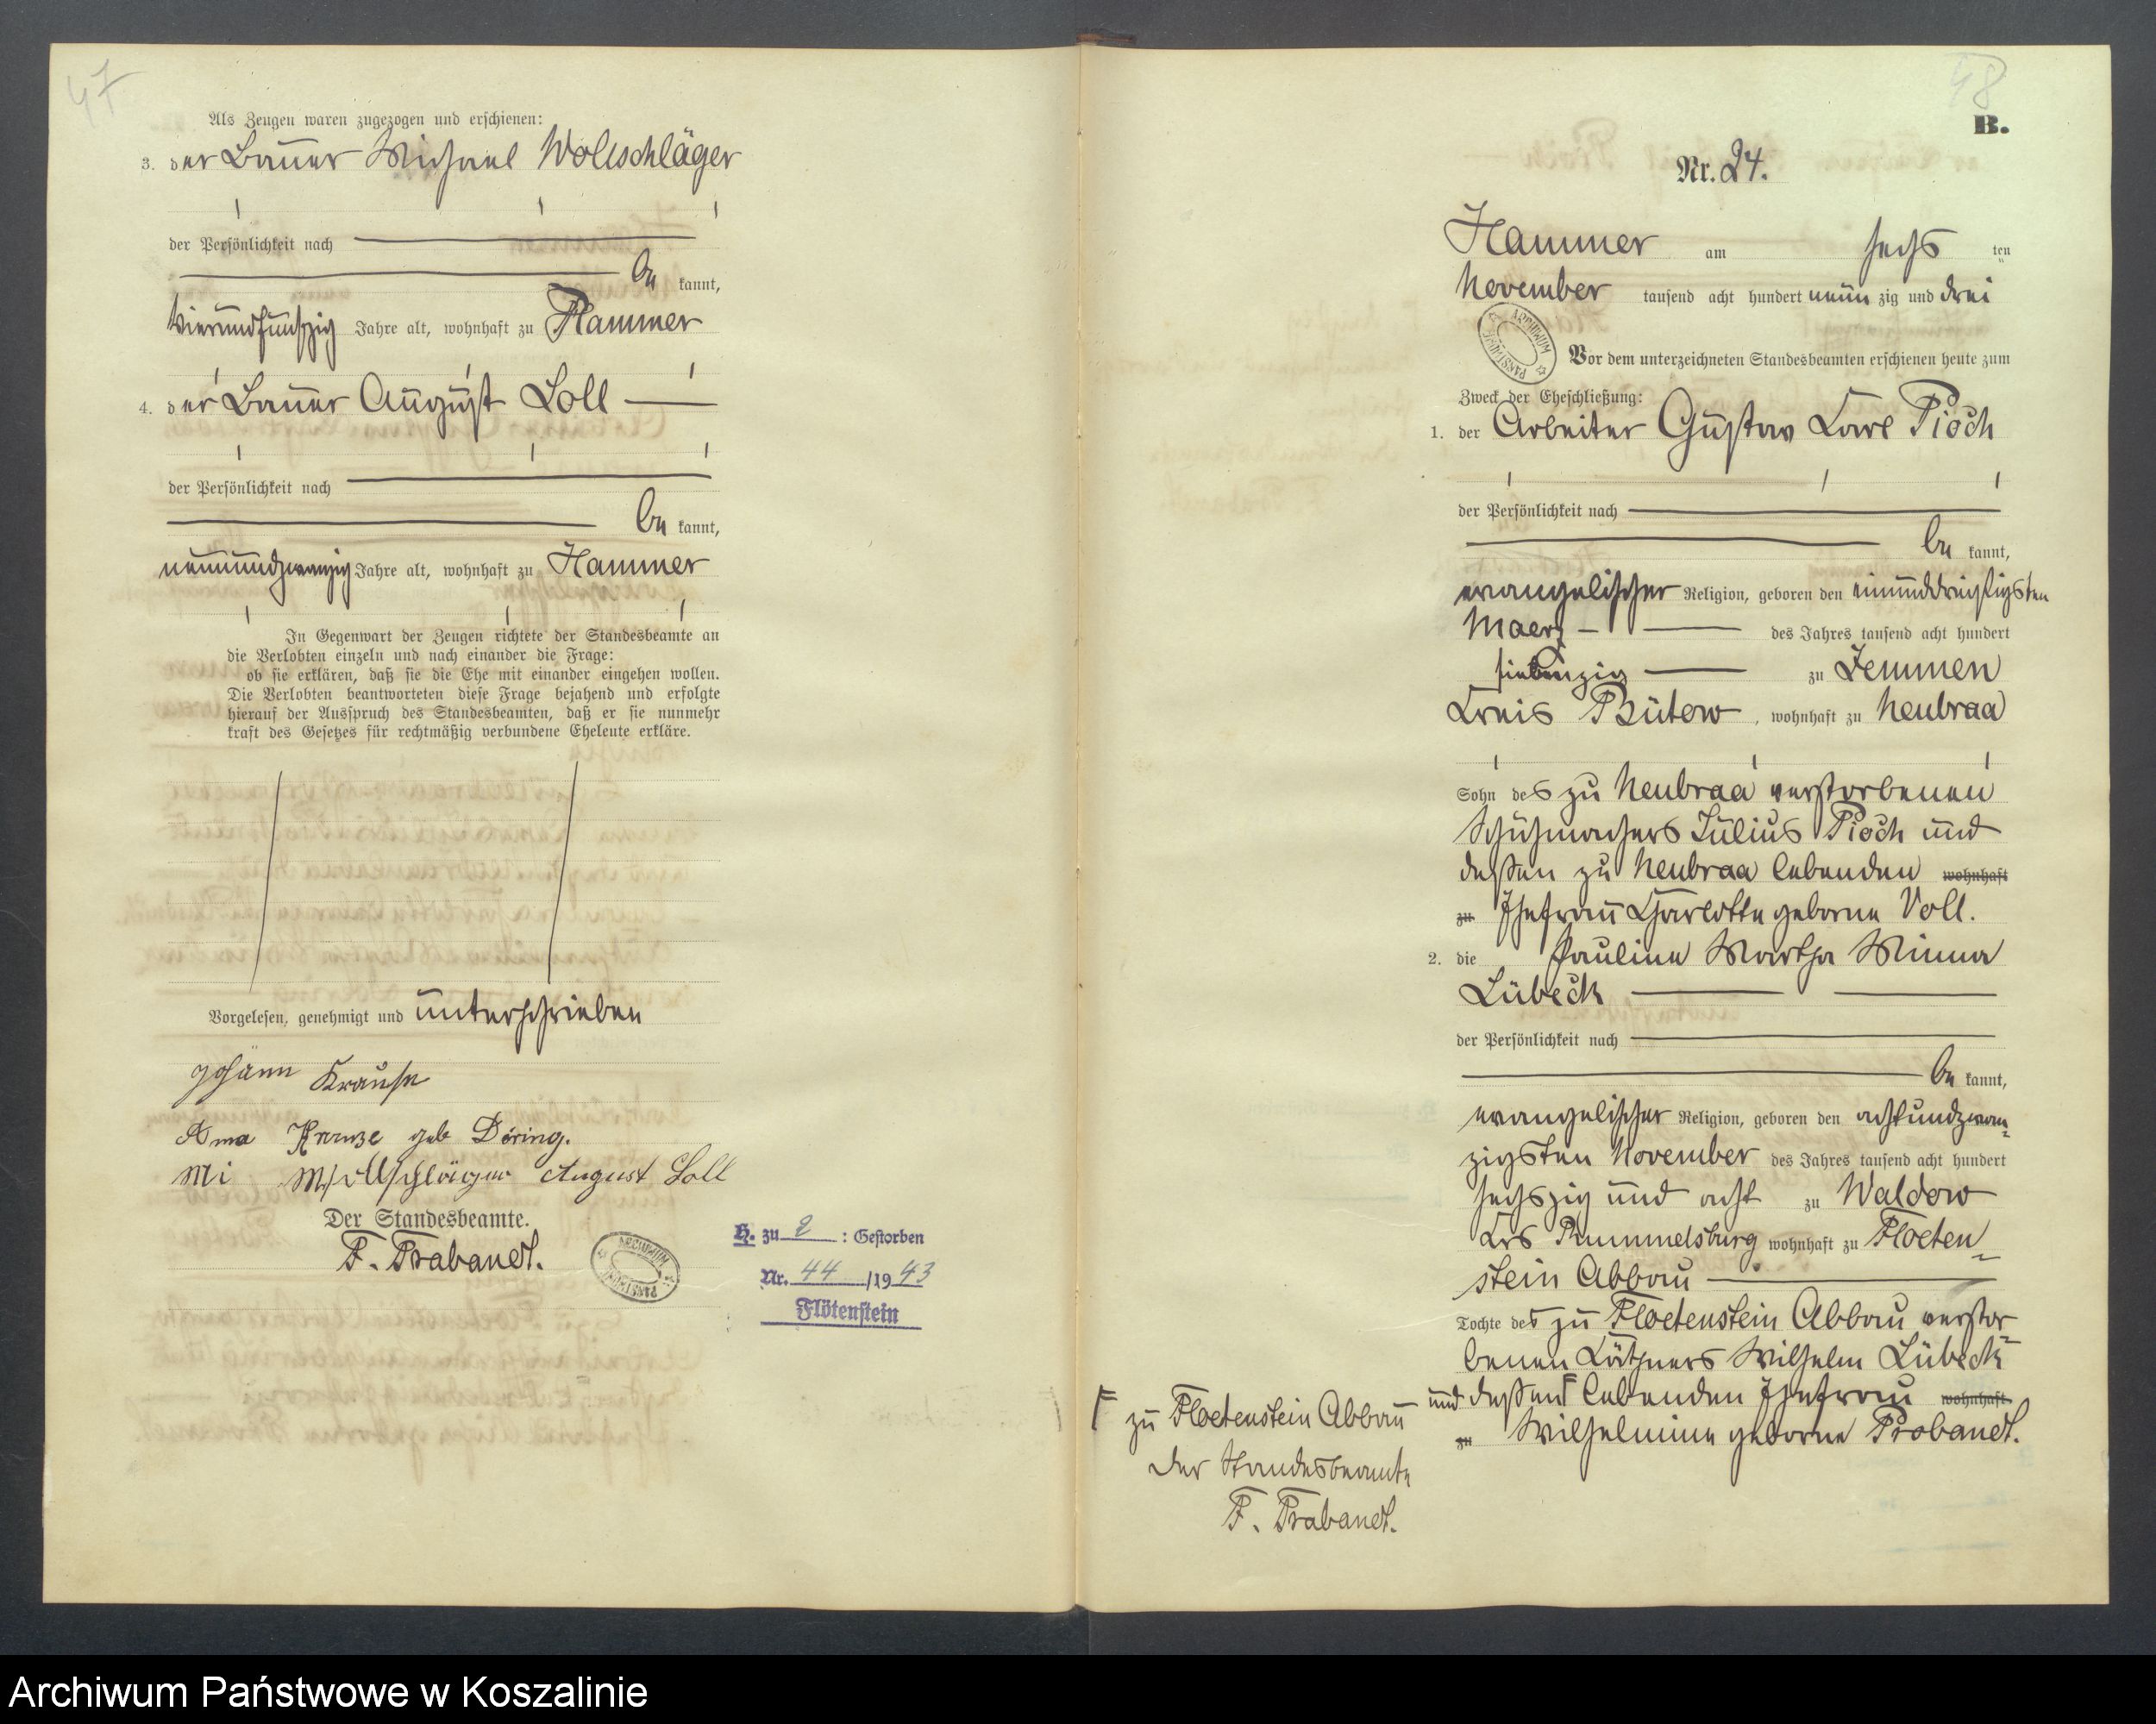 47
Als Zeugen waren zugezogen und erschienen:
3. der Bauer Michael Wollschläger
der Persönlichkeit nach
be kannt,
vierundfünfzig Jahre alt, wohnhaft zu Hammer
4. der Bauer August Loll
der Persönlichkeit nach
be kannt,
neunundzwanzig Jahre alt, wohnhaft zu Hammer
In Gegenwart der Zeugen richtete der Standesbeamte an
die Verlobten einzeln und nach einander die Frage:
ob sie erklären, daß sie die Ehe mit einander eingehen wollen.
Die Verlobten beantworteten diese Frage bejahend und erfolgte
hierauf der Ausspruch des Standesbeamten, daß er sie nunmehr
kraft des Gesetzes für rechtmäßig verbundene Eheleute erkläre.
Vorgelesen, genehmigt und unterschrieben
Johann Krause
Krause geb Döring.
Mi Wollschläger August Loll
Der Standesbeamte.
F. Brabandt.
ARCHIWUM PAŃSTWOWE
H. zu 2 : Gestorben
Nr. 44 /19 43
Flötenstein
48
B.
Nr. 24.
Hammer am sechs ten
November tausend acht hundert neun zig und drei
ARCHIWUM PAŃSTWOWE
Vor dem unterzeichneten Standesbeamten erschienen heute zum
Zweck der Eheschließung:
1. der Arbeiter Gustav Carl Pioch
der Persönlichkeit nach
be kannt,
evangelischer Religion, geboren den einunddreißigsten
Maerz des Jahres tausend acht hundert
siebenzig zu Zemmen
Kreis Bütow, wohnhaft zu Neubraa
Sohn des zu Neubraa verstorbenen
Schuhmachers Julius Pioch und
dessen zu Neubraa lebenden wohnhaft
zu Ehefrau Charlotte geborne Voll.
2. die Pauline Martha Minna
Lübeck
der Persönlichkeit nach
be kannt,
evangelischer Religion, geboren den achtundzwan-
zigsten November des Jahres tausend acht hundert
sechszig und acht zu Waldow
Krs Rummelsburg wohnhaft zu Floeten-
stein Abbau
Tochte des zu Floetenstein Abbau verstor-
benen Käthners Wilhelm Lübeck
und dessen F lebenden Ehefrau wohnhaft
zu Wilhelmine geborne Brabandt.
F zu Floetenstein Abbau
Der Standesbeamte
F. Brabandt.
Archiwum Państwowe w Koszalinie